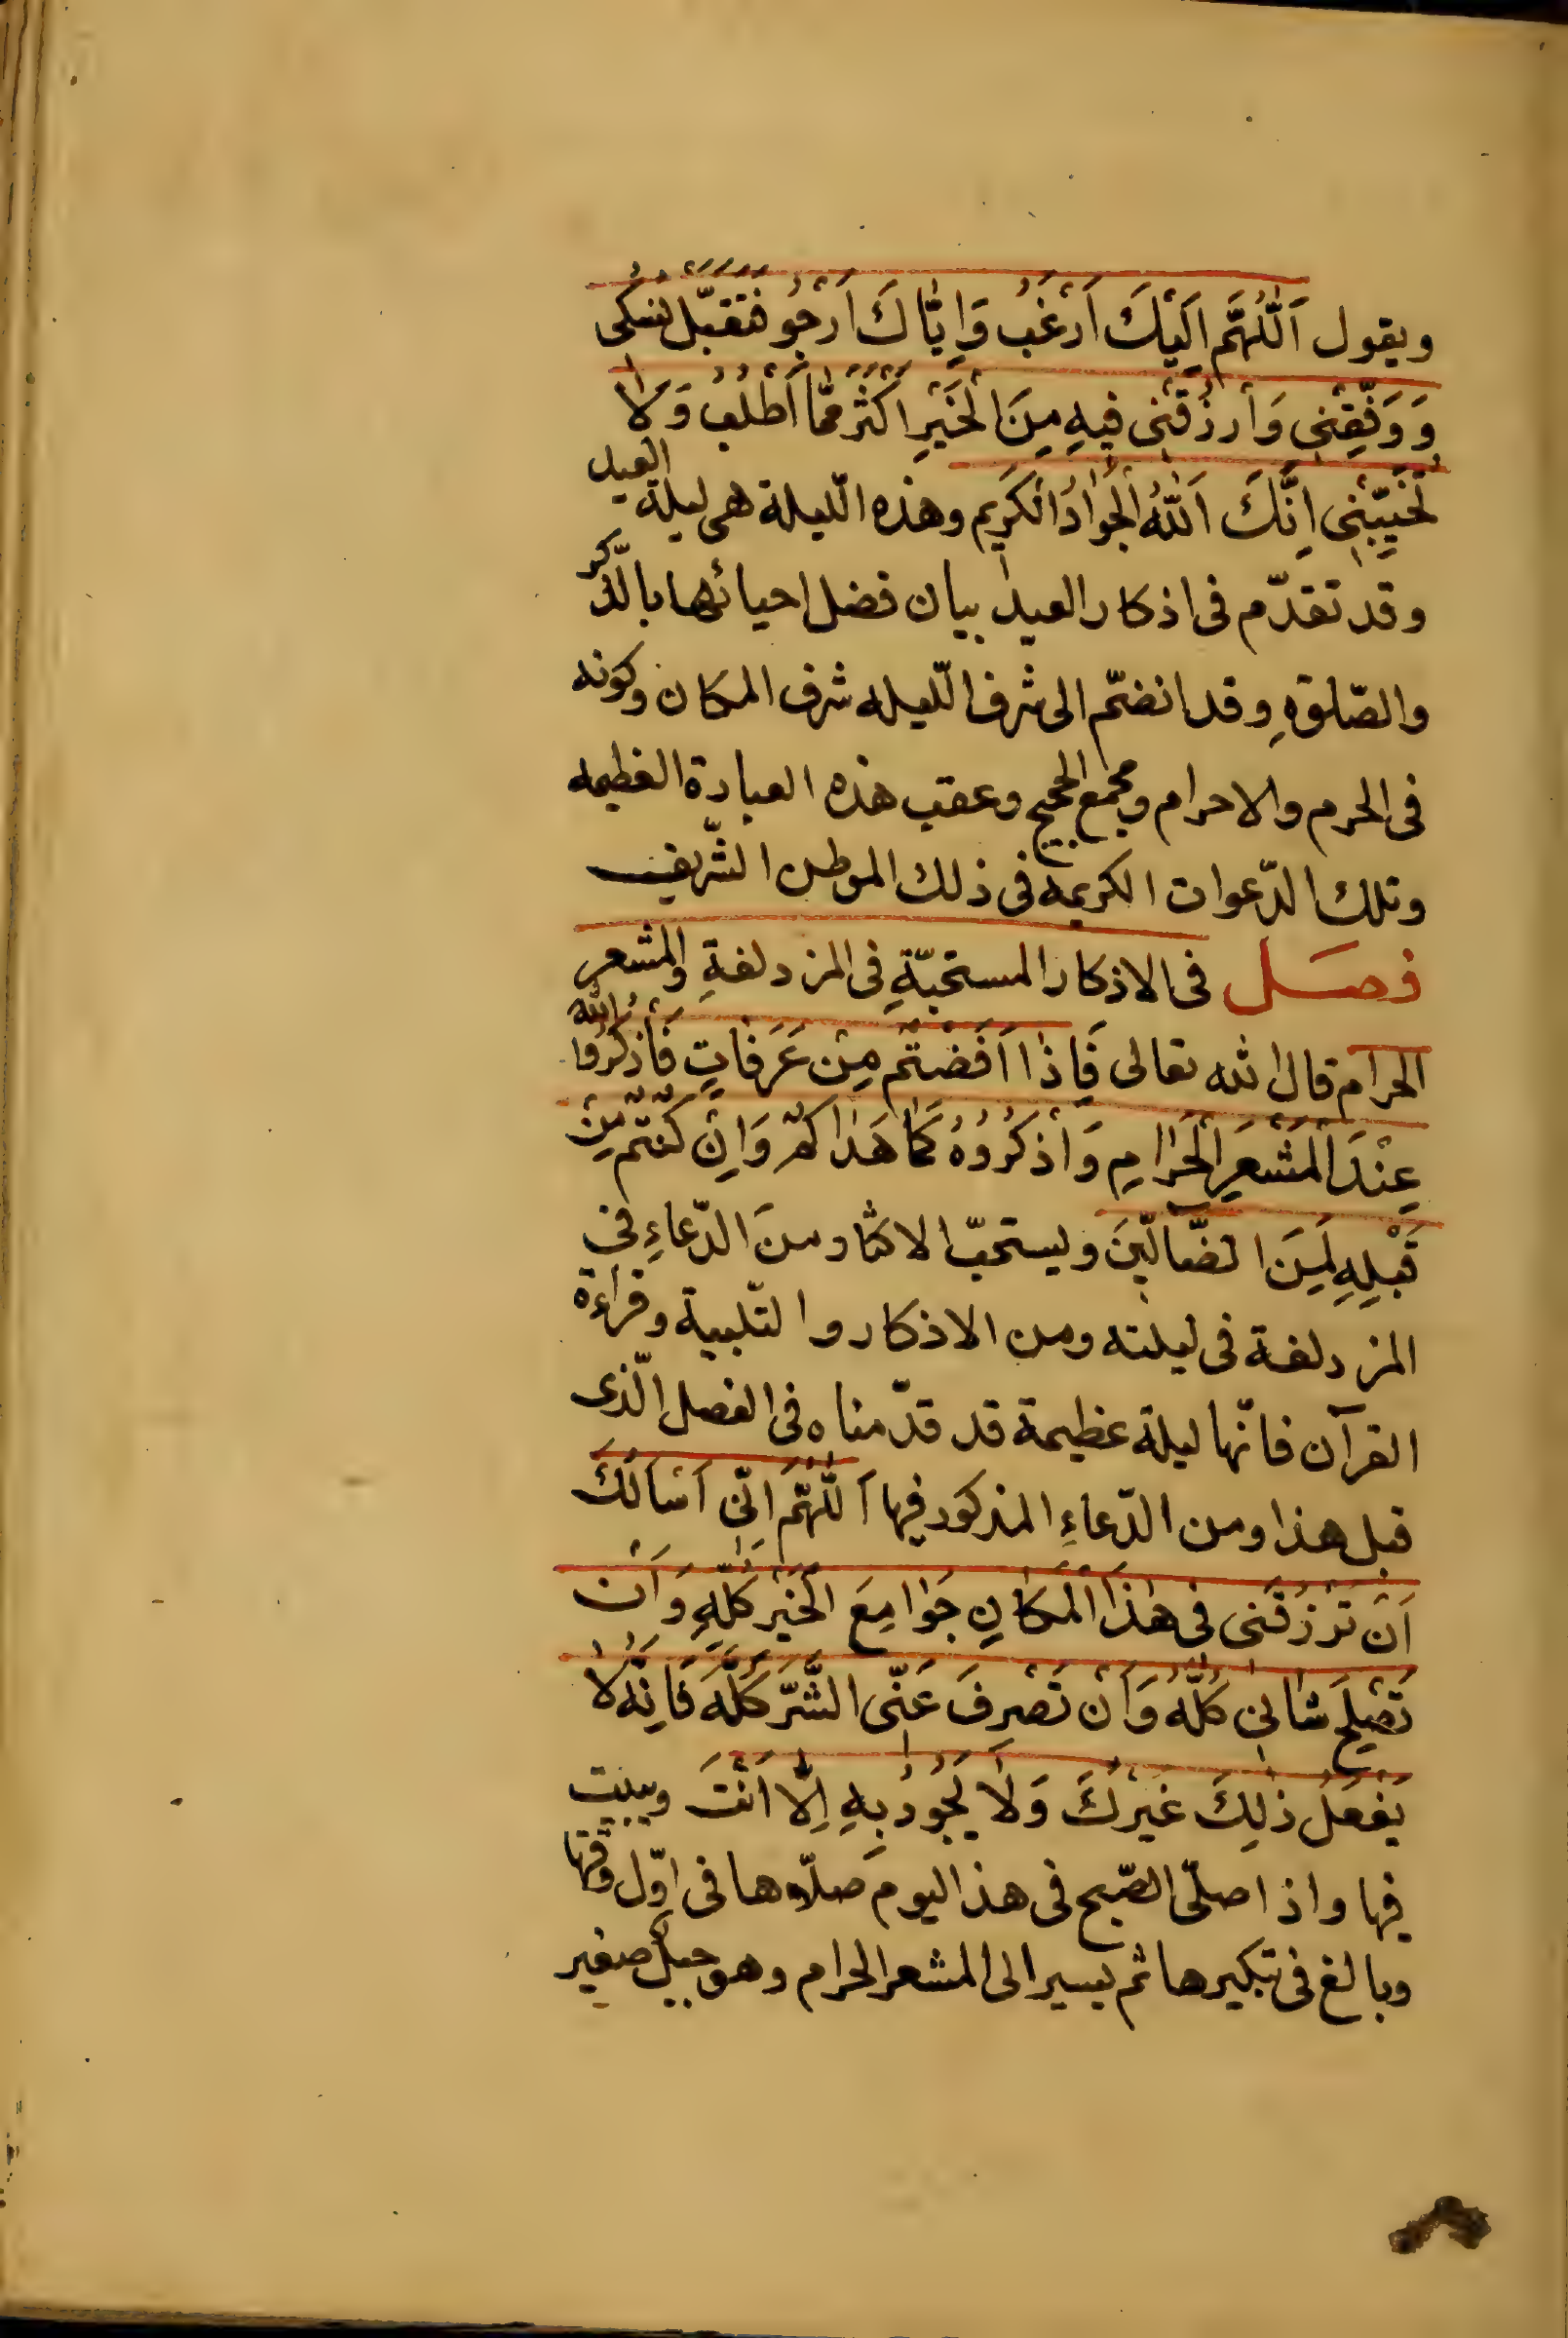 ويقول اَللّٰهُمَّ اِلَيْكَ اَرْغَبُ وَاِيَّاكَ اَرْجُو فَتَقَبَّلْ نُسُكى
وَوَفِّقْنِى وَارْزُقْنِى فِيهِ مِنَ الْخَيْرِ اَكْثَرَ مِمَّا اَطْلُبُ وَلَا
تُخَيِّبْنِى اِنَّكَ اَنْتَ اللّٰهُ الْجَوَادُ الْكَرِيم وهذه اللّيلة هى ليلة العيد
وقد تقدّم فى اذكار العيد بيان فضل احيائها بالذّكر
والصّلوةِ وقد انضمّ الى شرف اللّيله شرف المكان وكونه
فى الحرم والاحرام ومجمع الحجيج وعقب هذه العبادة العظيمه
وتلك الدّعوات الكريمه فى ذلك الموطن الشّريف
فصل فى الاذكار المستحبّةِ فى المزدلفةِ والمشعر
الحرام قال الله تعالى فَاِذا اَفَضْتُمْ مِنْ عَرَفَاتٍ فَاذْكُرُوا اللّٰهَ
عِنْدَ الْمَشْعَرِ الْحَرَامِ وَاذْكُرُوهُ كَمَا هَدَاكُمْ وَاِنْ كُنْتُمْ مِنْ
قَبْلِهِ لَمِنَ الضَّالِّينَ ويستحبّ الاكثار منَ الدّعاءِ فى
المزدلفة فى ليلته ومن الاذكار والتّلبية وقراءة
القرآن فانّها ليلة عظيمة قد قدّمناه فى الفصل الّذى
قبل هذا ومن الدّعاءِ المذكور فيها اَللّٰهُمَّ اِنِّى اَسْاَلُكَ
اَنْ تَرْزُقَنى فِى هٰذَا الْمَكَانِ جَوَامِعَ الْخَيْرِ كُلِّهِ وَاَنْ
تُصْلِحَ شَانِى كُلَّهُ وَاَنْ تَصْرِفَ عَنِّى الشَّرَّ كُلَّهُ فَاِنَّهُ لَا
يَفْعَلُ ذٰلِكَ غَيْرُكَ وَلَا يَجُودُ بِهِ اِلَّا اَنْتَ ويبيت
فيها واذا صلّى الصّبح فى هذا اليوم صلّاها فى اوّل وقتها
وبالغ فى تبكيرها ثم يسير الى المشعر الحرام وهو جبل صغير